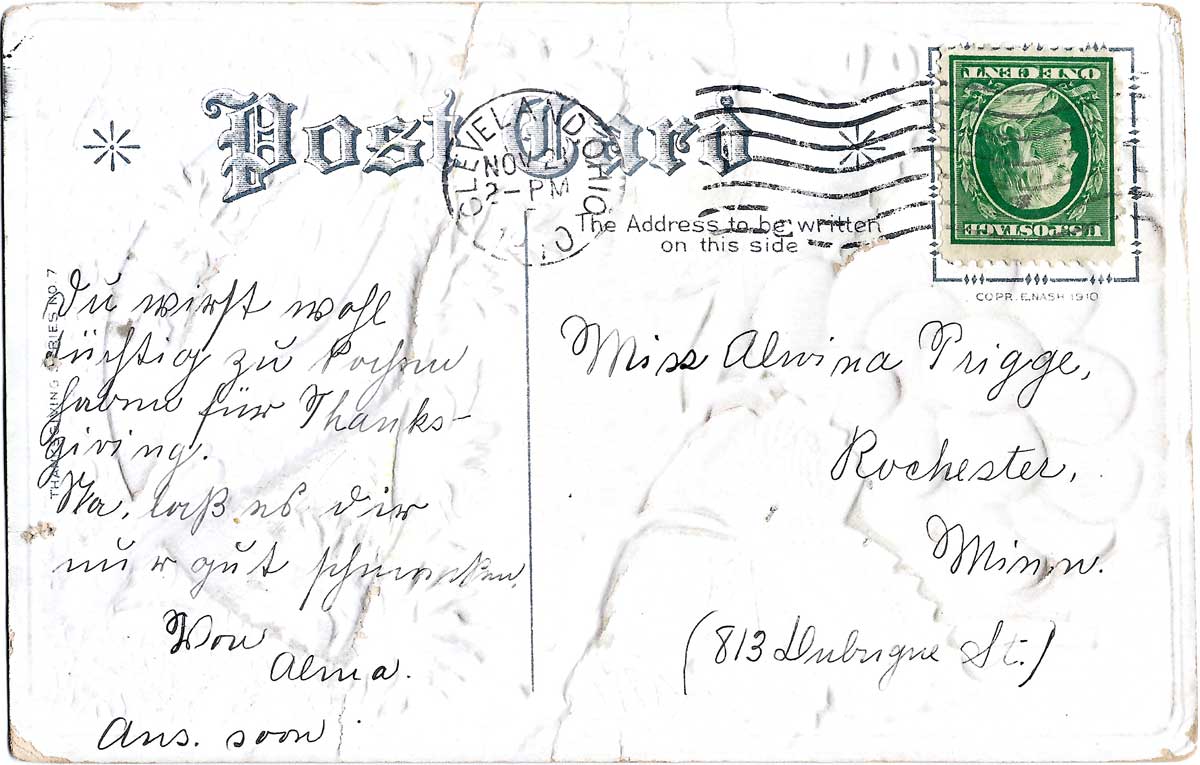 Post Card
CLEVELAND, OHIO
NOV
2-PM
The Address to be written
on this side
ONE CENT
U.S. POSTAGE
COPR. E. NASH 1910
THANKSGIVING SERIES NO 7
Du wirst wohl
tüchtig zu kochen
haben für Thanks-
giving.
Na, laß es dir
nur gut schmecken.
Von
Alma.
Ans. soon
Miss Alwina Prigge,
Rochester,
Minn.
(813 Dubuque St.)